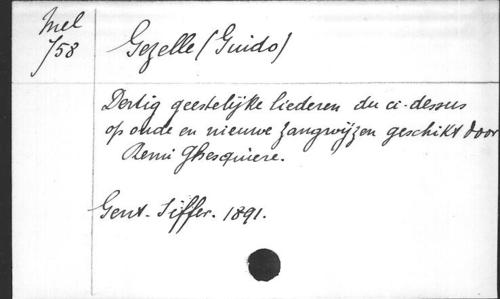 Mel
/58
Gezelle (Guido)
Dertig geestelijke liederen du ci-dessus
op oude en nieuwe zangwijzen geschikt door
Remi Ghesquiere.
Gent. Siffer. 1891.